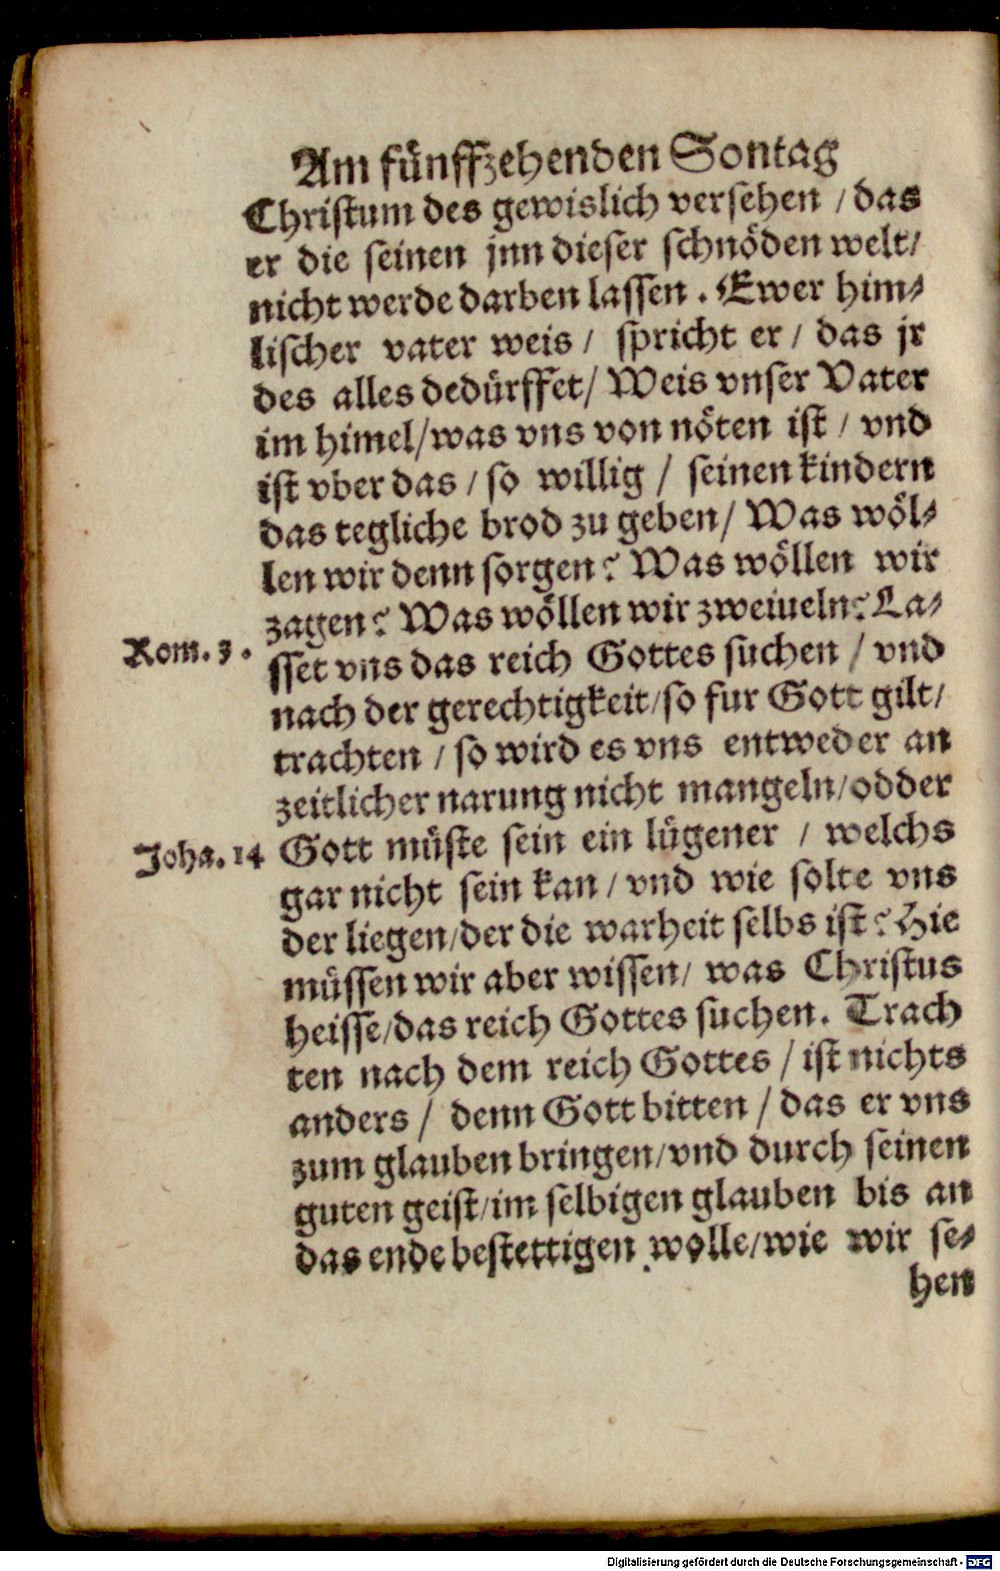 Am fünffzehenden Sontag
Christum des gewislich versehen / das
er die seinen jnn dieser schnöden welt/
nicht werde darben lassen. Ewer him-
lischer vater weis / spricht er / das jr
des alles dedürffet/ Weis vnser Vater
im himel/was vns von nöten ist / vnd
ist vber das / so willig / seinen kindern
das tegliche brod zu geben/ Was wöl-
len wir denn sorgen? Was wöllen wir
zagen? Was wöllen wir zweiueln? La-
Rom. 3. sset vns das reich Gottes suchen / vnd
nach der gerechtigkeit/so fur Gott gilt/
trachten / so wird es vns entweder an
zeitlicher narung nicht mangeln/odder
Joha. 14 Gott müste sein ein lügener / welchs
gar nicht sein kan / vnd wie solte vns
der liegen/der die warheit selbs ist? Hie
müssen wir aber wissen/ was Christus
heisse/das reich Gottes suchen. Trach
ten nach dem reich Gottes / ist nichts
anders / denn Gott bitten / das er vns
zum glauben bringen/vnd durch seinen
guten geist/im selbigen glauben bis an
das ende bestettigen wolle/wie wir se-
hen
Digitalisierung gefördert durch die Deutsche Forschungsgemeinschaft - DFG